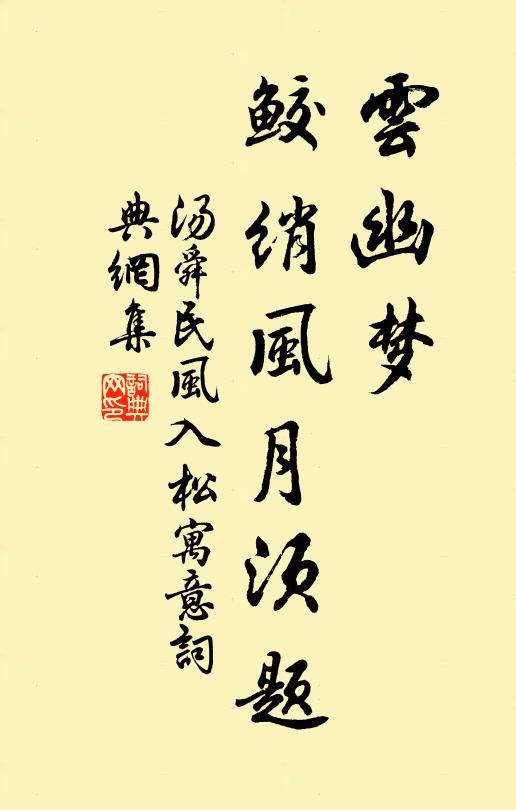 雲幽梦
鲛绡風月须題
汤舜民風入松寓意詞
典網集
詞典
网印